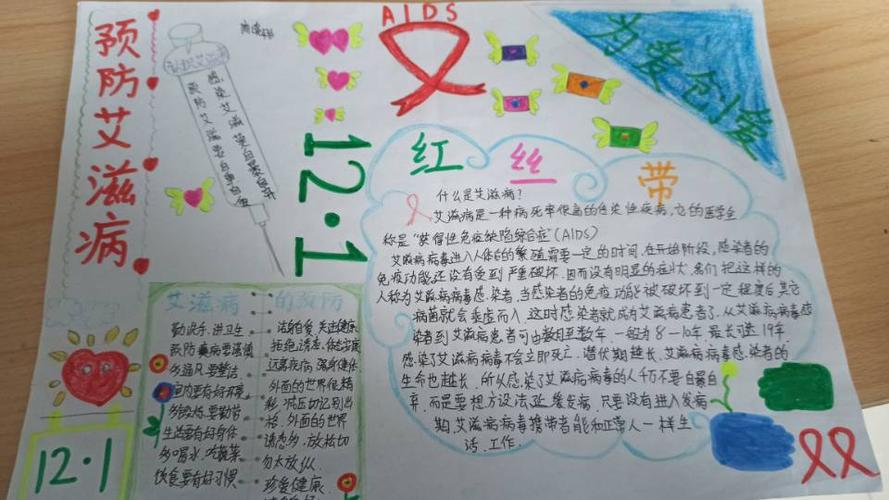 预防艾滋病
AIDS
为爱创爱
12·1
红丝带
什么是艾滋病?
艾滋病是一种病死率很高的传染性疾病,它的医学全
称是“获得性免疫缺陷综合症”(AIDS)
艾滋病病毒进入人体的繁殖需要一定的时间.在开始阶段,感染者的
免疫功能还没有受到严重破坏.因而没有明显的症状.我们把这样的
人称为艾滋病病毒感染者,当感染者的免疫功能被破坏到一定程度后其它
病菌就会乘虚而入.这时感染者就成为艾滋病患者了.从艾滋病病毒感
染者到艾滋病患者可由数月至数年.一般为8-10年.最长可达19年.
感染了艾滋病病毒不会立即死亡.潜伏期越长,艾滋病病毒感染者的
生命也越长.所以感染了艾滋病病毒的人千万不要自暴自
弃.而是要想方设法延缓发病.只要没有进入发病
期,艾滋病病毒携带者能和正常人一样生
活、工作.
艾滋病的预防
勤洗手,讲卫生
预防
多通风要整洁
室内要有好环境
生活要有好身体
多喝水,吃蔬菜
饮食要有好习惯
洁身自爱,关注健康
拒绝诱惑
远离疾病,强身健体
外面的世界很精
彩
外面的世界
诱惑多,放松切
勿太放纵
珍爱健康
12·1